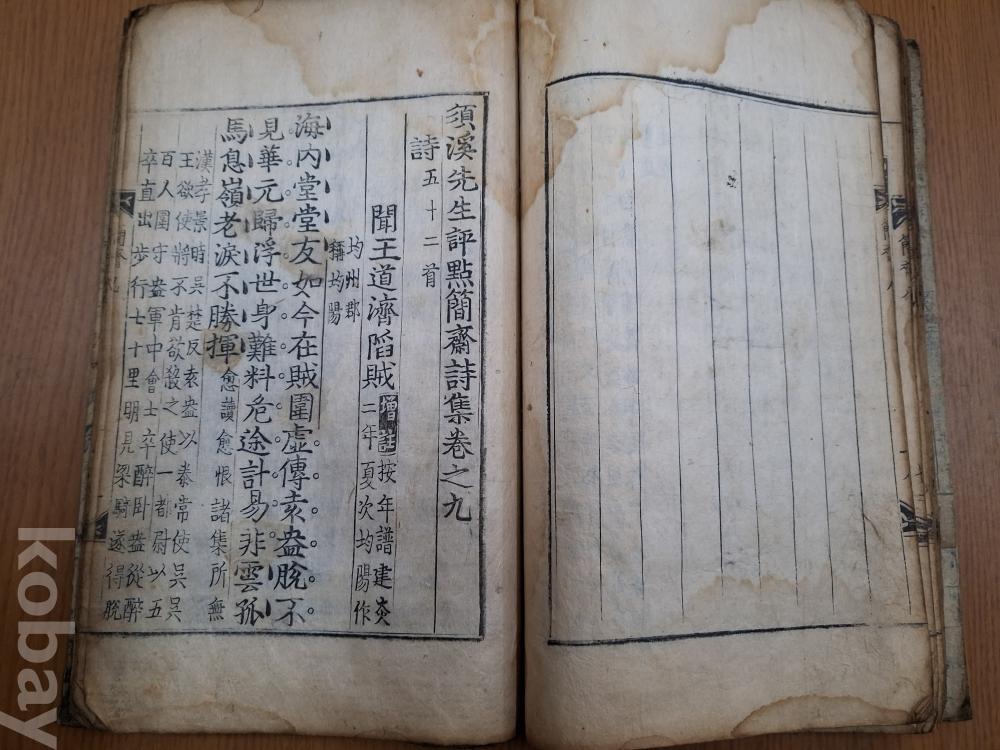 須溪先生評點簡齋詩集卷之九
詩五十二首
聞王道濟陷賊 增註 按年譜建炎
二年夏次均陽作
均州郡
稱均陽
海內堂堂友如今在賊圍虛傳袁盎脫不
見華元歸浮世身難料危途計易非雲孤
馬息嶺老淚不勝揮 愈讀愈恨諸集所無
漢孝景時吳楚反袁盎以泰常使吳吳
王欲使將不肯欲殺之使一都尉以五
百人圍守盎軍中會士卒醉臥盎從醉
卒直出步行七十里明見梁騎遂得脫
kobay